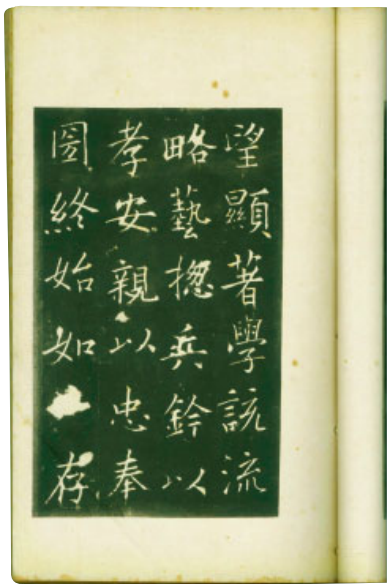 望顯著學該流
略藝揔兵鈐以
孝安親以忠奉
國終始如一存